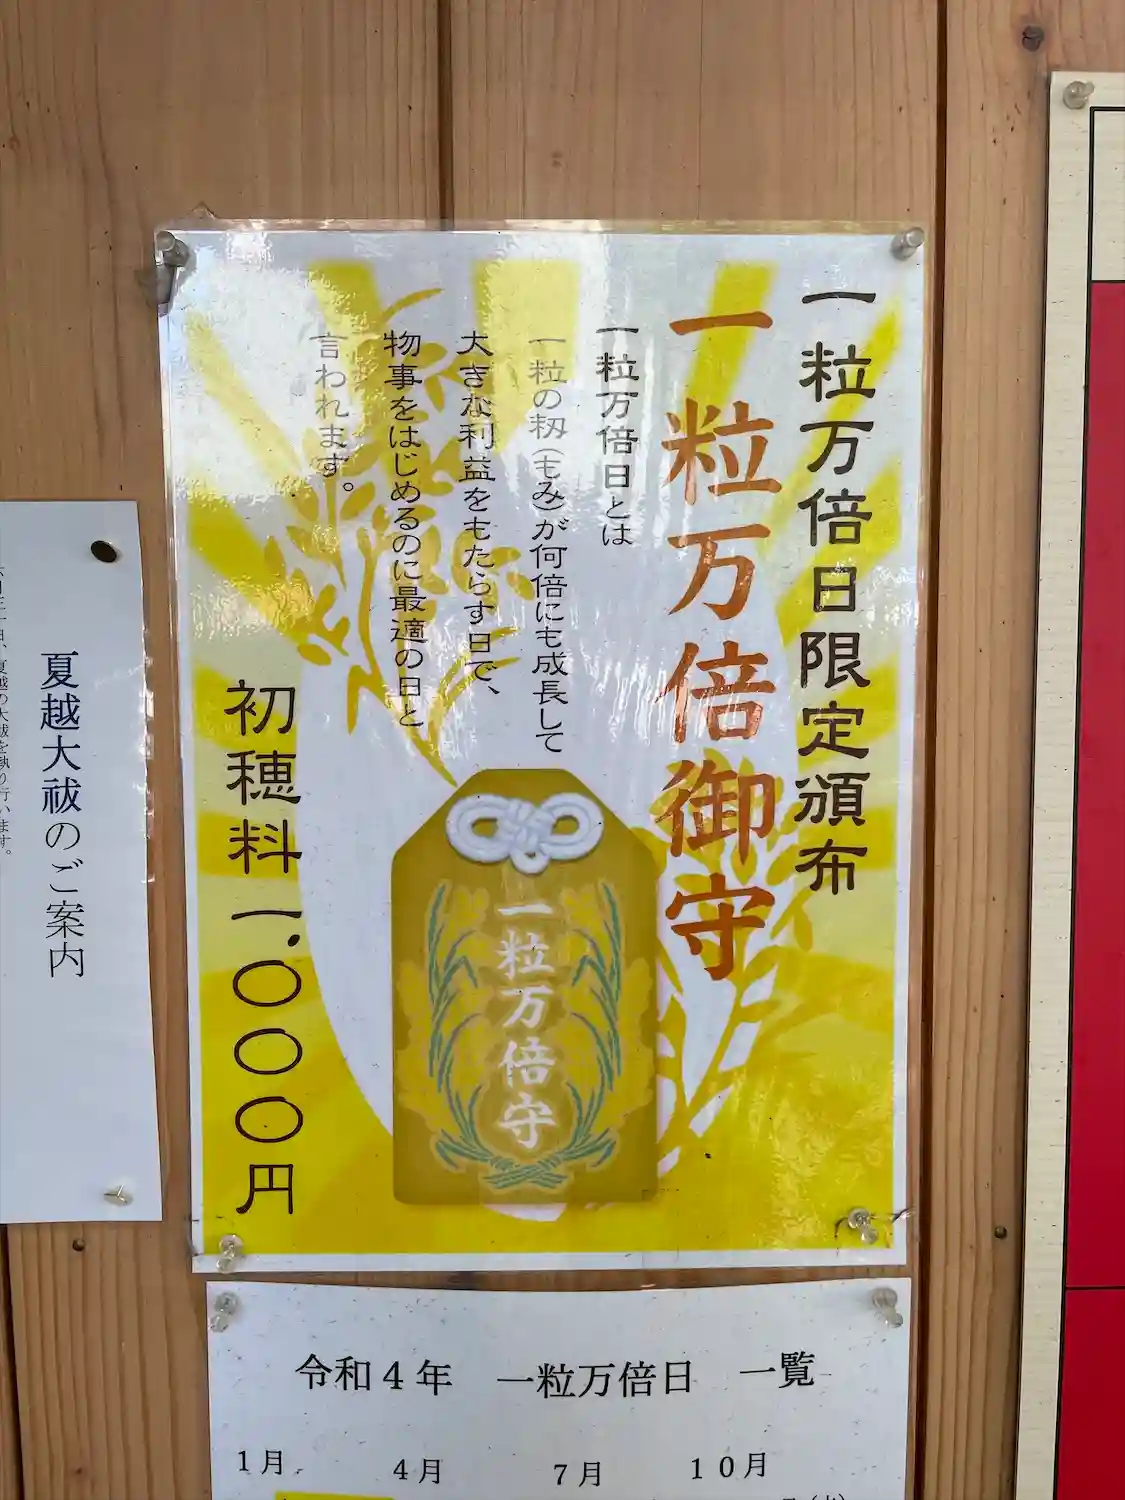 一粒万倍日限定頒布
一粒万倍御守
一粒万倍日とは
一粒の籾(もみ)が何倍にも成長して
大きな利益をもたらす日で、
物事をはじめるのに最適の日と
言われます。
初穂料 一、〇〇〇円
一粒万倍守
夏越大祓のご案内
令和4年 一粒万倍日 一覧
1月 4月 7月 10月